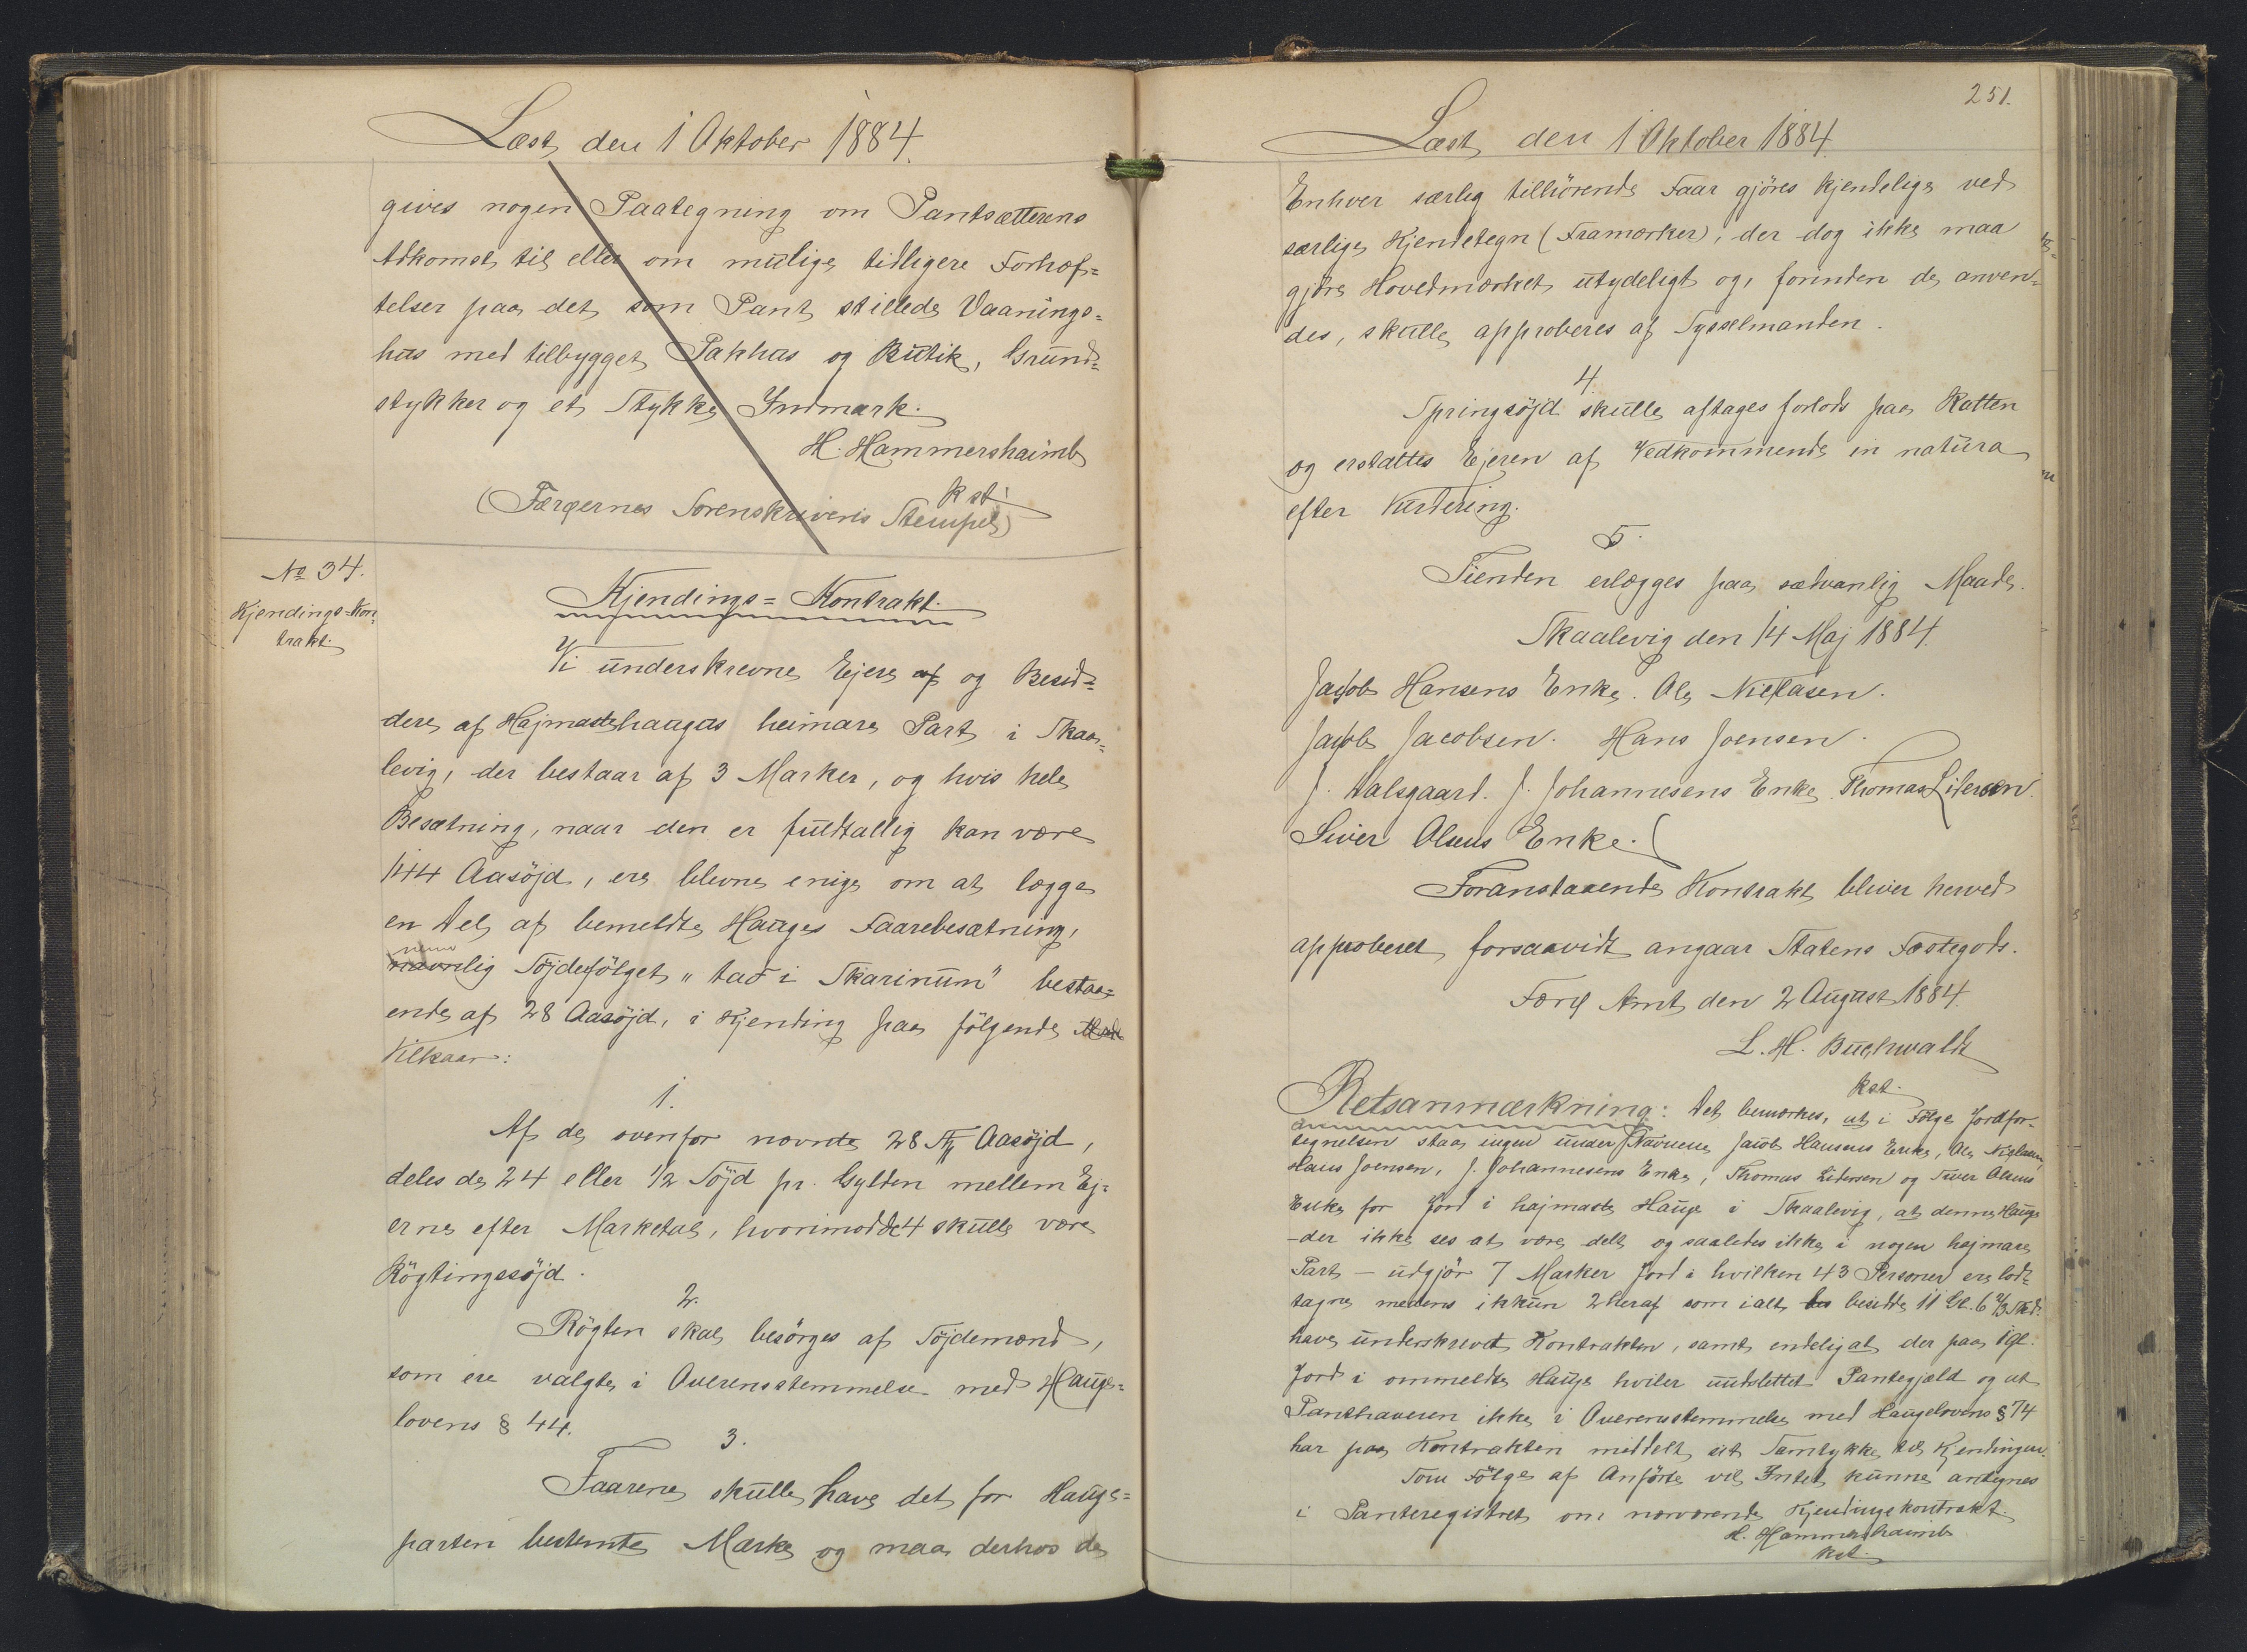 Læst den 1 Oktober 1884.
gives nogen Paategning om Pantsætterens
Adkomst til eller om mulige tidligere Forhæf=
telser paa det som Pant stillede Vaanings=
hus med tilbygget Pakhus og Butik, Grund=
stykker og et Stykke Indmark.
H. Hammershaimb
kst.
(Færøernes Sorenskriveris Stempel)
No 34.
Kjendings-Kon=
trakt.
Kjendings=Kontrakt.
Vi underskrevne Ejere af og Besid=
dere af Højmadehaugas heimare Part i Skaa=
levig, der bestaar af 3 Marker, og hvis hele
Besætning, naar den er fuldtallig kan være
144 Aasöjd, ere blevne enige om at lægge
en Del af bemeldte Hauges Faarebesætning,
nem
navnlig Söjdefölget "tað i Skarinum" bestaa=
ende af 28 Aasöjd, i Kjending paa fölgende
Vilkaar:
1.
Af de ovenfor nævnte 28 Stk Aasöjd,
deles de 24 eller 1/2 Söjd pr. Gylden mellem Ej=
erne efter Marketal, hvorimod de 4 skulle være
Rögtingssöjd.
2.
Rögten skal besörges af Söjdemænd,
som ere valgte i Overensstemmelse med Hauge=
lovens § 44.
3.
Faarene skulle have det for Hauge=
parten bestemte Mærke og maa derhos de
251.
Læst den 1 Oktober 1884.
Enhver særlig tilhörende Faar gjöres kjendelige ved
særlige Kjendetegn (Framærker), der dog ikke maa
gjöre Hovedmærket utydeligt og, forinden de anven=
des, skulle approberes af Sysselmanden.
4.
Springsöjd skulle aftages forlods paa Rætten
og erstattes Ejeren af Vedkommende in natura
efter Vurdering.
5.
Tienden erlægges paa sædvanlig Maade.
Skaalevig den 14 Maj 1884.
Jacob Hansens Enke. Ole Niclasen.
Jacob Jacobsen. Hans Joensen.
J. Dalsgaard. J. Johannesens Enke. Thomas Lidersen.
Siver Olsens Enke.
Foranstaaende Kontrakt bliver herved
approberet forsaavidt angaar Statens Fæstegods.
Færø Amt den 2 August 1884.
L. H. Buchwaldt
kst.
Retsanmærkning: Det bemærkes, at i Fölge Jordfor-
tegnelsen staar ingen under Navnene Jacob Hansens Enke, Ole Niclasen,
Hans Joensen, J. Johannesens Enke, Thomas Lidersen og Siver Olsens
Enke for Jord i højmade Hauge i Skaalevig, at denne Hauge
-der ikke ses at være delt og saaledes ikke i nogen hejmare
Part - udgjör 7 Marker Jord i hvilken 43 Personer ere lod=
tagne medens ikkun 2 heraf som ialt besidde 11 Gl. 6 2/3 Skd.
have underskrevet Kontrakten, samt endelig at der paa 1 Gl.
Jord i ommeldte Hauge hviler uudslettet Pantegjæld og at
Panthaveren ikke i Overensstemmelse med Haugelovens § 74
har paa Kontrakten meddelt sit Samtykke til Kjendingen.
Som Fölge af Anförte vil Intet kunne antegnes
i Panteregistret om nærværende Kjendingskontrakt.
H. Hammershaimb
kst.